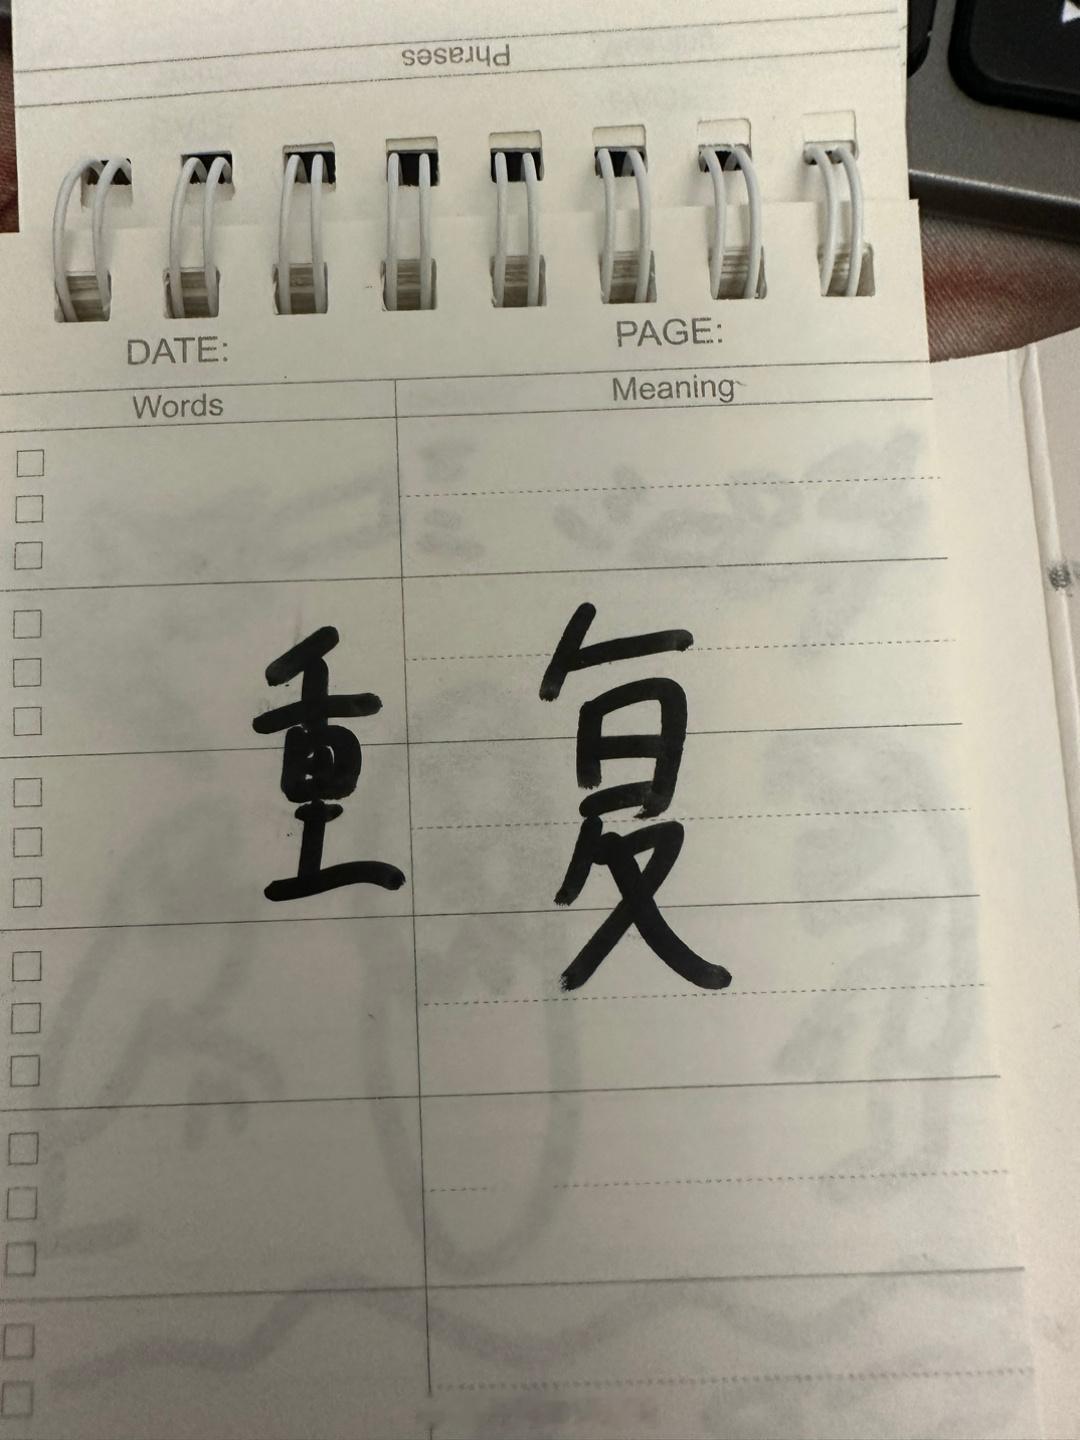 Phrases
DATE: PAGE:
Words Meaning
重复